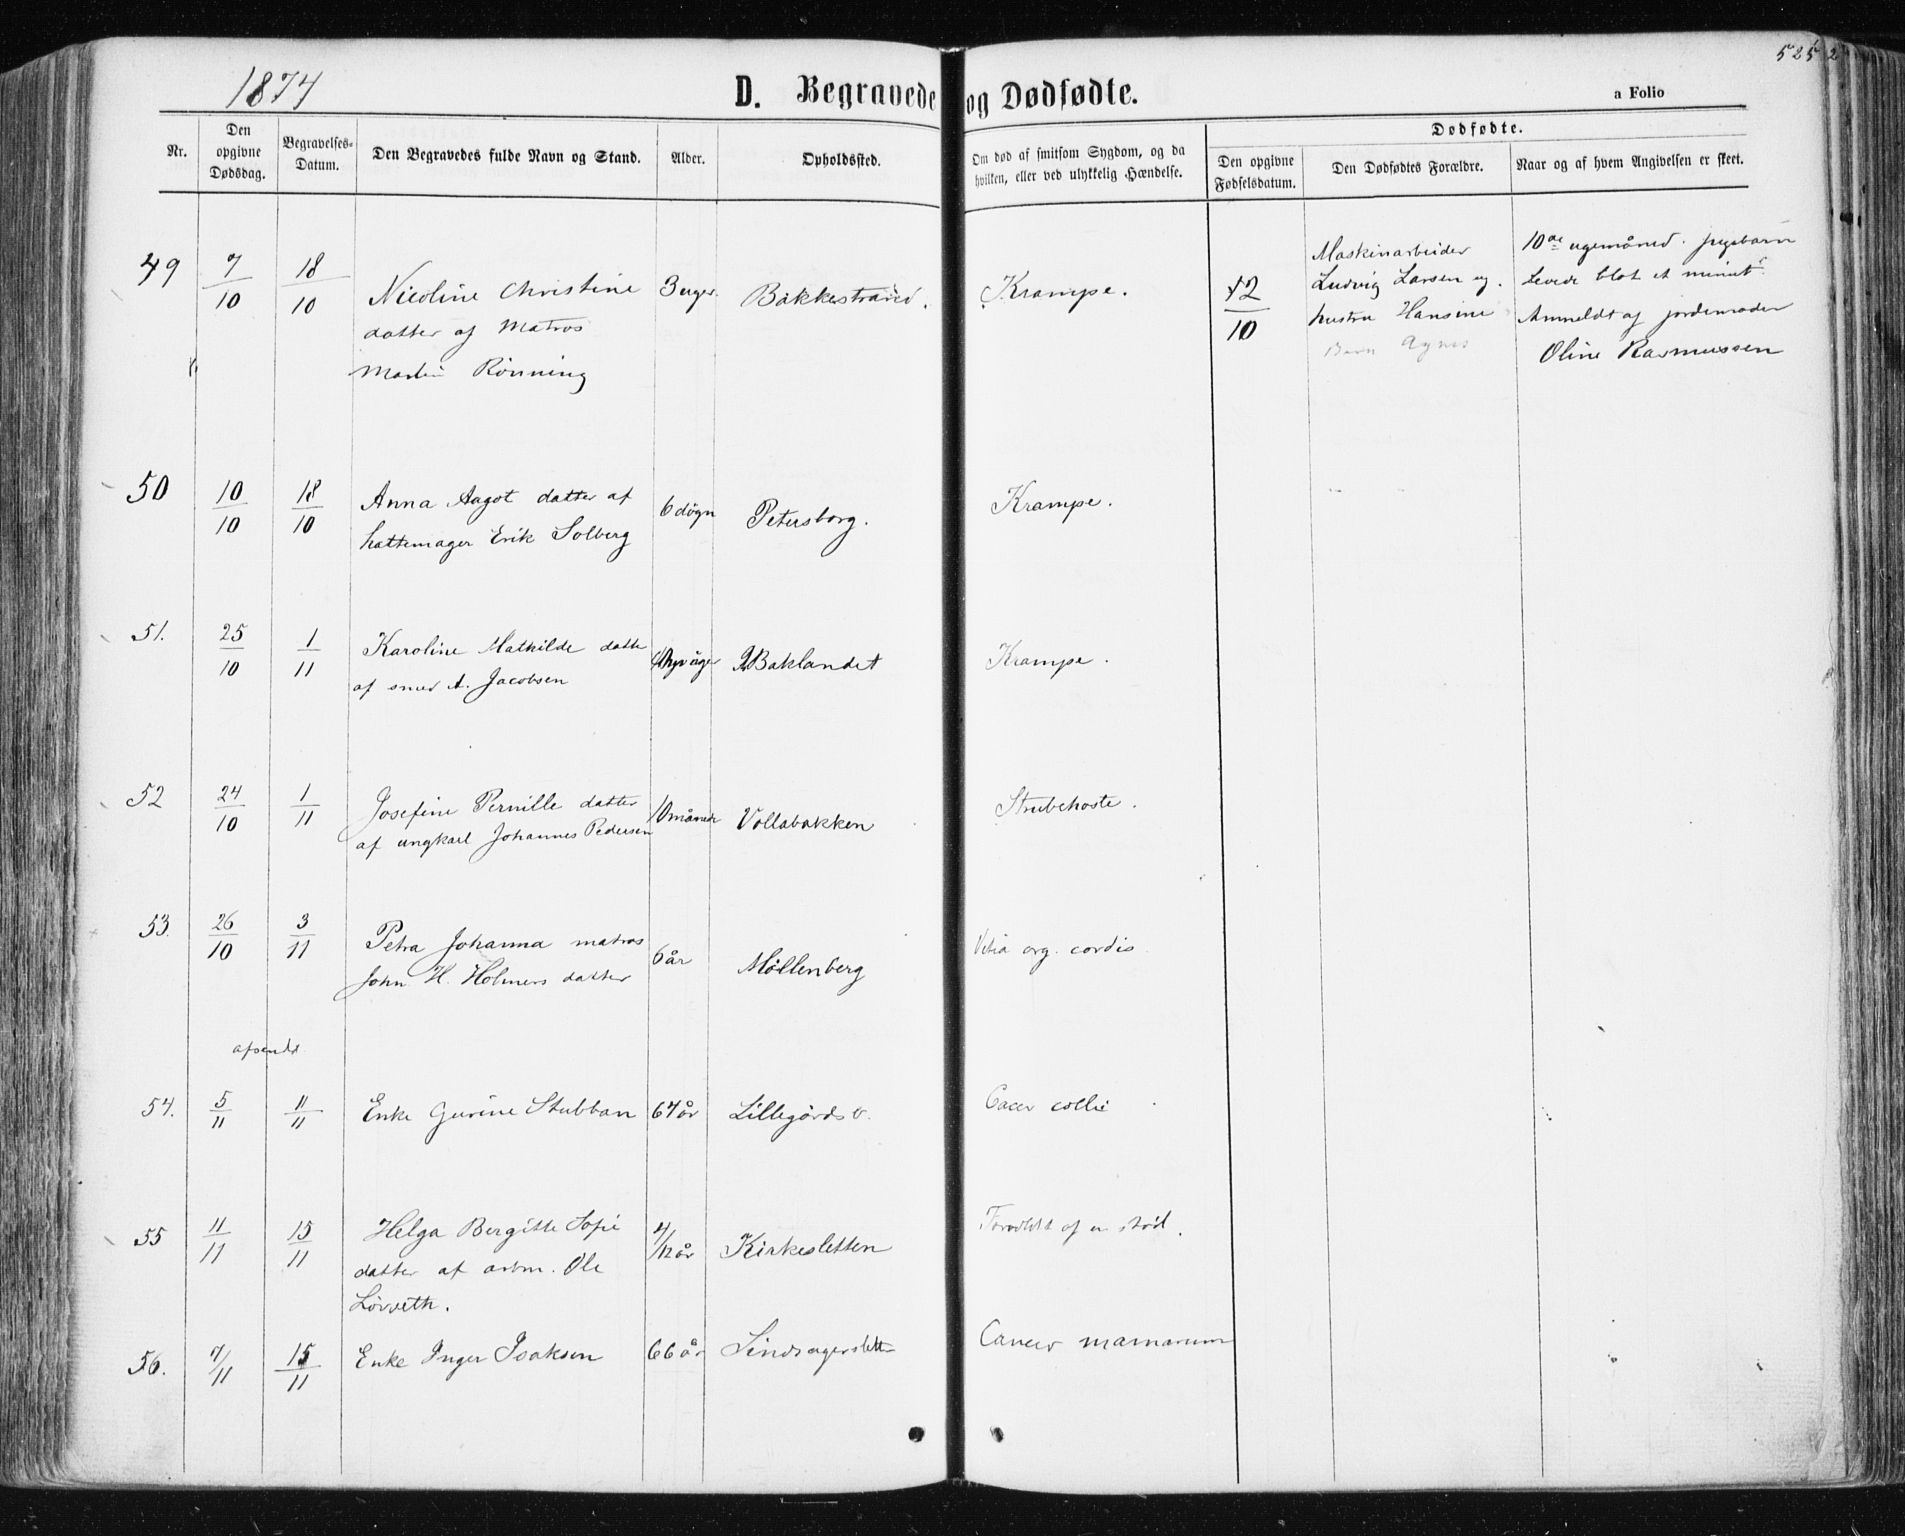 1874
525
D. Begravede og Dødfødte.
a Folio
Nr.
Den opgivne Dødsdag.
Begravelses-Datum.
Den Begravedes fulde Navn og Stand.
Alder.
Opholdssted.
Om død af smitsom Sygdom, og da hvilken, eller ved ulykkelig Hændelse.
Dødfødte.
Den opgivne Fødselsdatum.
Den Dødfødtes Forældre.
Naar og af hvem Angivelsen er skeet.
49 7/10 18/10 Nicoline Christine 3 uger. Bakkestrand. Krampe.
datter af Matros
Martin Rönning
12/10
Maskinarbeider
Ludvig Larsen og
hustru Hansine
Barn Agnes
10de ugemåned. pigebarn
Levede blot et minut
Anmeldt af jordemoder
Oline Rasmussen
50 10/10 18/10 Anna Aagot datter af 6 døgn Petersborg. Krampe.
hattemager Erik Solberg
51. 25/10 1/11 Karoline Mathilde datte Baklandet Krampe.
af smed A. Jacobsen
52 24/10 1/11 Josefine Pernille datter 10 måneder Vollabakken Strubehoste.
af ungkarl Johannes Pedersen
53. 26/10 3/11 Petra Johanna matros 6 år Möllenberg Vitia org. cordis
John H. Holmers datter
afsendt
54. 5/11 11/11 Enke Gurine Stubban 67 år Lillegårds v. Cacer collie
55 11/11 15/11 Helga Bergitte Sofie 4/12 år Kirkesletten Forvoldt af en stød.
datter af arbm. Ole
Lövseth.
56. 7/11 15/11 Enke Inger Isaksen 66 år Cancer mamarum